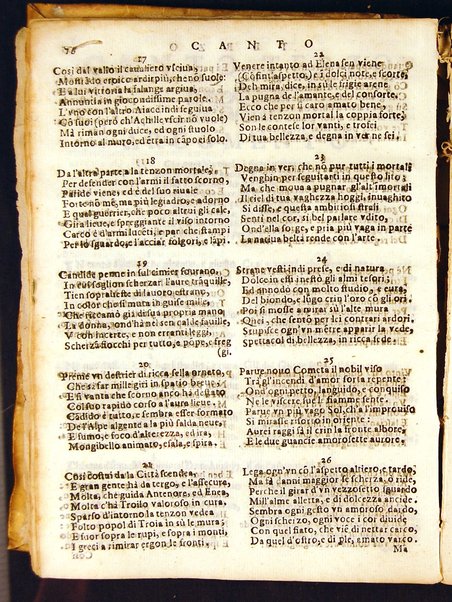 76
CANTO
17
Così dal vallo il caualiero vsciua,
Mostrãdo eroico ardir più, che nõ suole:
E a lui vittoria la falange argiua,
Annuntia in gioconòissime parole.
L'vno con l'altro Aiace indi seguiua
Cõ suoi (però ch'Achille vscir nõ vuole)
Mà riman ogni duce, ed ogni stuolo
Intorno al muro, ed ètra in cãpo ei solo.
18
Da l'altra parte a la tenzon mortale,
Per defender con l'armi il fatto scorno,
Paride viene; ed è del suo riuale
Forte nò mè, ma più legiadro, e adorno
E qual guerrier, che poco altrui gli cale,
Gira lieue, e speggiante il viso intorno
Carco è d'armi eletti; e par che stampi
Per lo sguardo, l'acciar folgori, e lãpi.
19
Candide penne in sul cimier sourano,
In cui soglion scherzar l'aure trãquille,
Tien sopraueste di lauoro estrano,
In color che si muta in guise mille,
Che ricamò già di sua propria mano
La donna, ond'hanno i sen calde fauille,
V con incerte, e non erranti leggi,
Scherzã fiocchi per tutto, e pòpe, e freg
gi.
20
Preme vn destrier di ricca sella ornato,
Che sà far mille giri in spatio breue;
E si vanta che scorno anco hà defiato
Col suo rapido corso a l'aure lieue.
Càdido è tutto, e sembra esser formato
De l'Alpe algente a la più salda neue,
E fumo, e foco d'alterezza, ed ira,
Mongibello animato, esala, e spira.
21
Così costui da la Città scendea,
E gran gente hà da tergo, e l'assecura,
Molta, che guida Antenore, ed Enea,
Molta c'hà Troilo valoroso in cura.
Sparso d'intorno la tenzon vedea
Folto popol di Troia in sù le mura;
E fuor sopra le rupi, e sopra i monti,
I greci a rimirar ergon le fronti,
22
Venere intanto ad Elena sen viene
(Cò finti aspetto,) e i dolci note, e scorte,
Deh mira, dice, in sù le frigie arene
La pugna de l'amante, e del consorte.
Ecco che per il caro amato bene,
Vien a tenzon mortal la coppia forte;
Son le contese lor vanti, e trofei
Di tua bellezza, e degna in ver ne sei.
23
Degna in ver, che nò pur tutt'i mortali
Venghin per seguitarti in questo lito;
Ma che moua a pugnar gl'alt'immortali
Il ciel di tua vaghezza hoggi inuaghito,
Sì disse, e questa ambitiosi strali
Sentì nel cor, sì bel parlare vdito,
Ond'ella sorge, e pria più vaga in parte
La natiua beltà rende con l'arte.
24
Strane vesti indi prese, e di natura
Dolce in esti innestò gli almi tesori;
Ed annodò con molto studio, e cura,
Del biondo, e lugo crin l'oro cò gli ori.
Poi si mosse a mirar sù l'alte mura
Quei, che sentò per lei contrari ardori.
Stupisce ogn'vn mètre apparir la vede,
Spettacol di bellezza, in ricca sede.
25
Parue nouo Cometa il nobil viso
Trà gl'incendi d'amor sorta repente;
Ond'ogni petto, languido, e conquiso
Ne le viscere suè la fiamme sente.
Parue vn più vago Sol, ch'a l'improuiso
Si mirasse risorto in oriente:
Aurei raggi fà il crin la fronte albore,
E le due guancie amorosette aurore,
26
Lega ogn'vn cò l'aspetto altiero, e tardo,
Ma fà danni maggior se scherza, ò ride,
Perche il girar d'vn vezzosetto sguardo
Mill'alme alletta, e di dolcezze ancide.
Sembra ogni gesto vn amoroso dardo,
Ogni scherzo, ogni voce i cor diuide
Con quel fiato, che viè di nettar carco,
Da quel d'ostro, e di ple, amato varco.
Ma